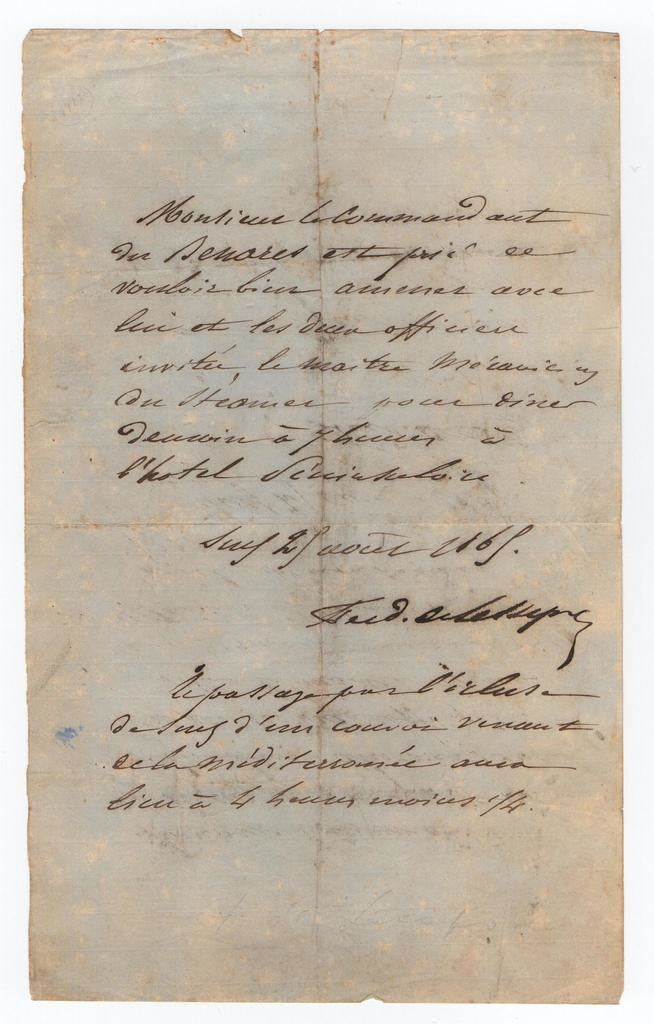 Monsieur le Commandant
du Benares est prié de
vouloir bien amener avec
lui et les deux officiers
invités, le maitre mécanicien
du Steamer pour diner
demain à 7 heures à
l'hotel Péninsulaire.
Suez 25 août 1865.
Ferd. de Lesseps
Le passage par l'écluse
de Suez d'un convoi venant
de la Méditerranée aura
lieu à 4 heures moins 1/4.